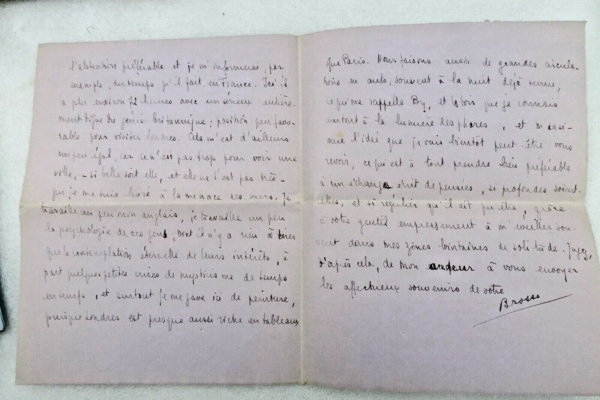 l'abstention préférable et je m'informerai, par
exemple, du temps qu'il fait en France. Ici il
a plu environ 72 heures avec un sérieux entière-
ment digne du génie britannique; position peu favo-
rable pour visiter Londres. Cela m'est d'ailleurs
un peu égal, car ce n'est pas trop pour voir une
ville, – si belle soit elle, et elle ne l'est pas très –
que je me suis livré à la menace des ours. Je
travaille un peu mon anglais, je travaille un peu
la psychologie de ces gens, dont il n'y a rien à tirer
que la contemplation éternelle de leurs intérêts, à
part quelques petites crises de mysticisme de temps
en temps, et surtout je me gave ici de peinture,
puisque Londres est presque aussi riche en tableaux
que Paris. Nous faisons aussi de grandes circula-
tions en auto, souvent à la nuit déjà venue,
ce qui me rappelle et le bois que je connais
surtout à la lumière des phares, et m'assai-
sonne l'idée que je vais bientôt peut être vous
revoir, ce qui est à tout prendre bien préférable
à un échange écrit de pensées, si profondes soient-
elles, et si régulier qu'il ait pu être, grâce
à votre gentil empressement à m'exciter sou-
vent dans mes zônes lointaines de solitude. Jugez,
d'après cela, de mon ardeur à vous envoyer
les affectueux souvenirs de votre
Brosse